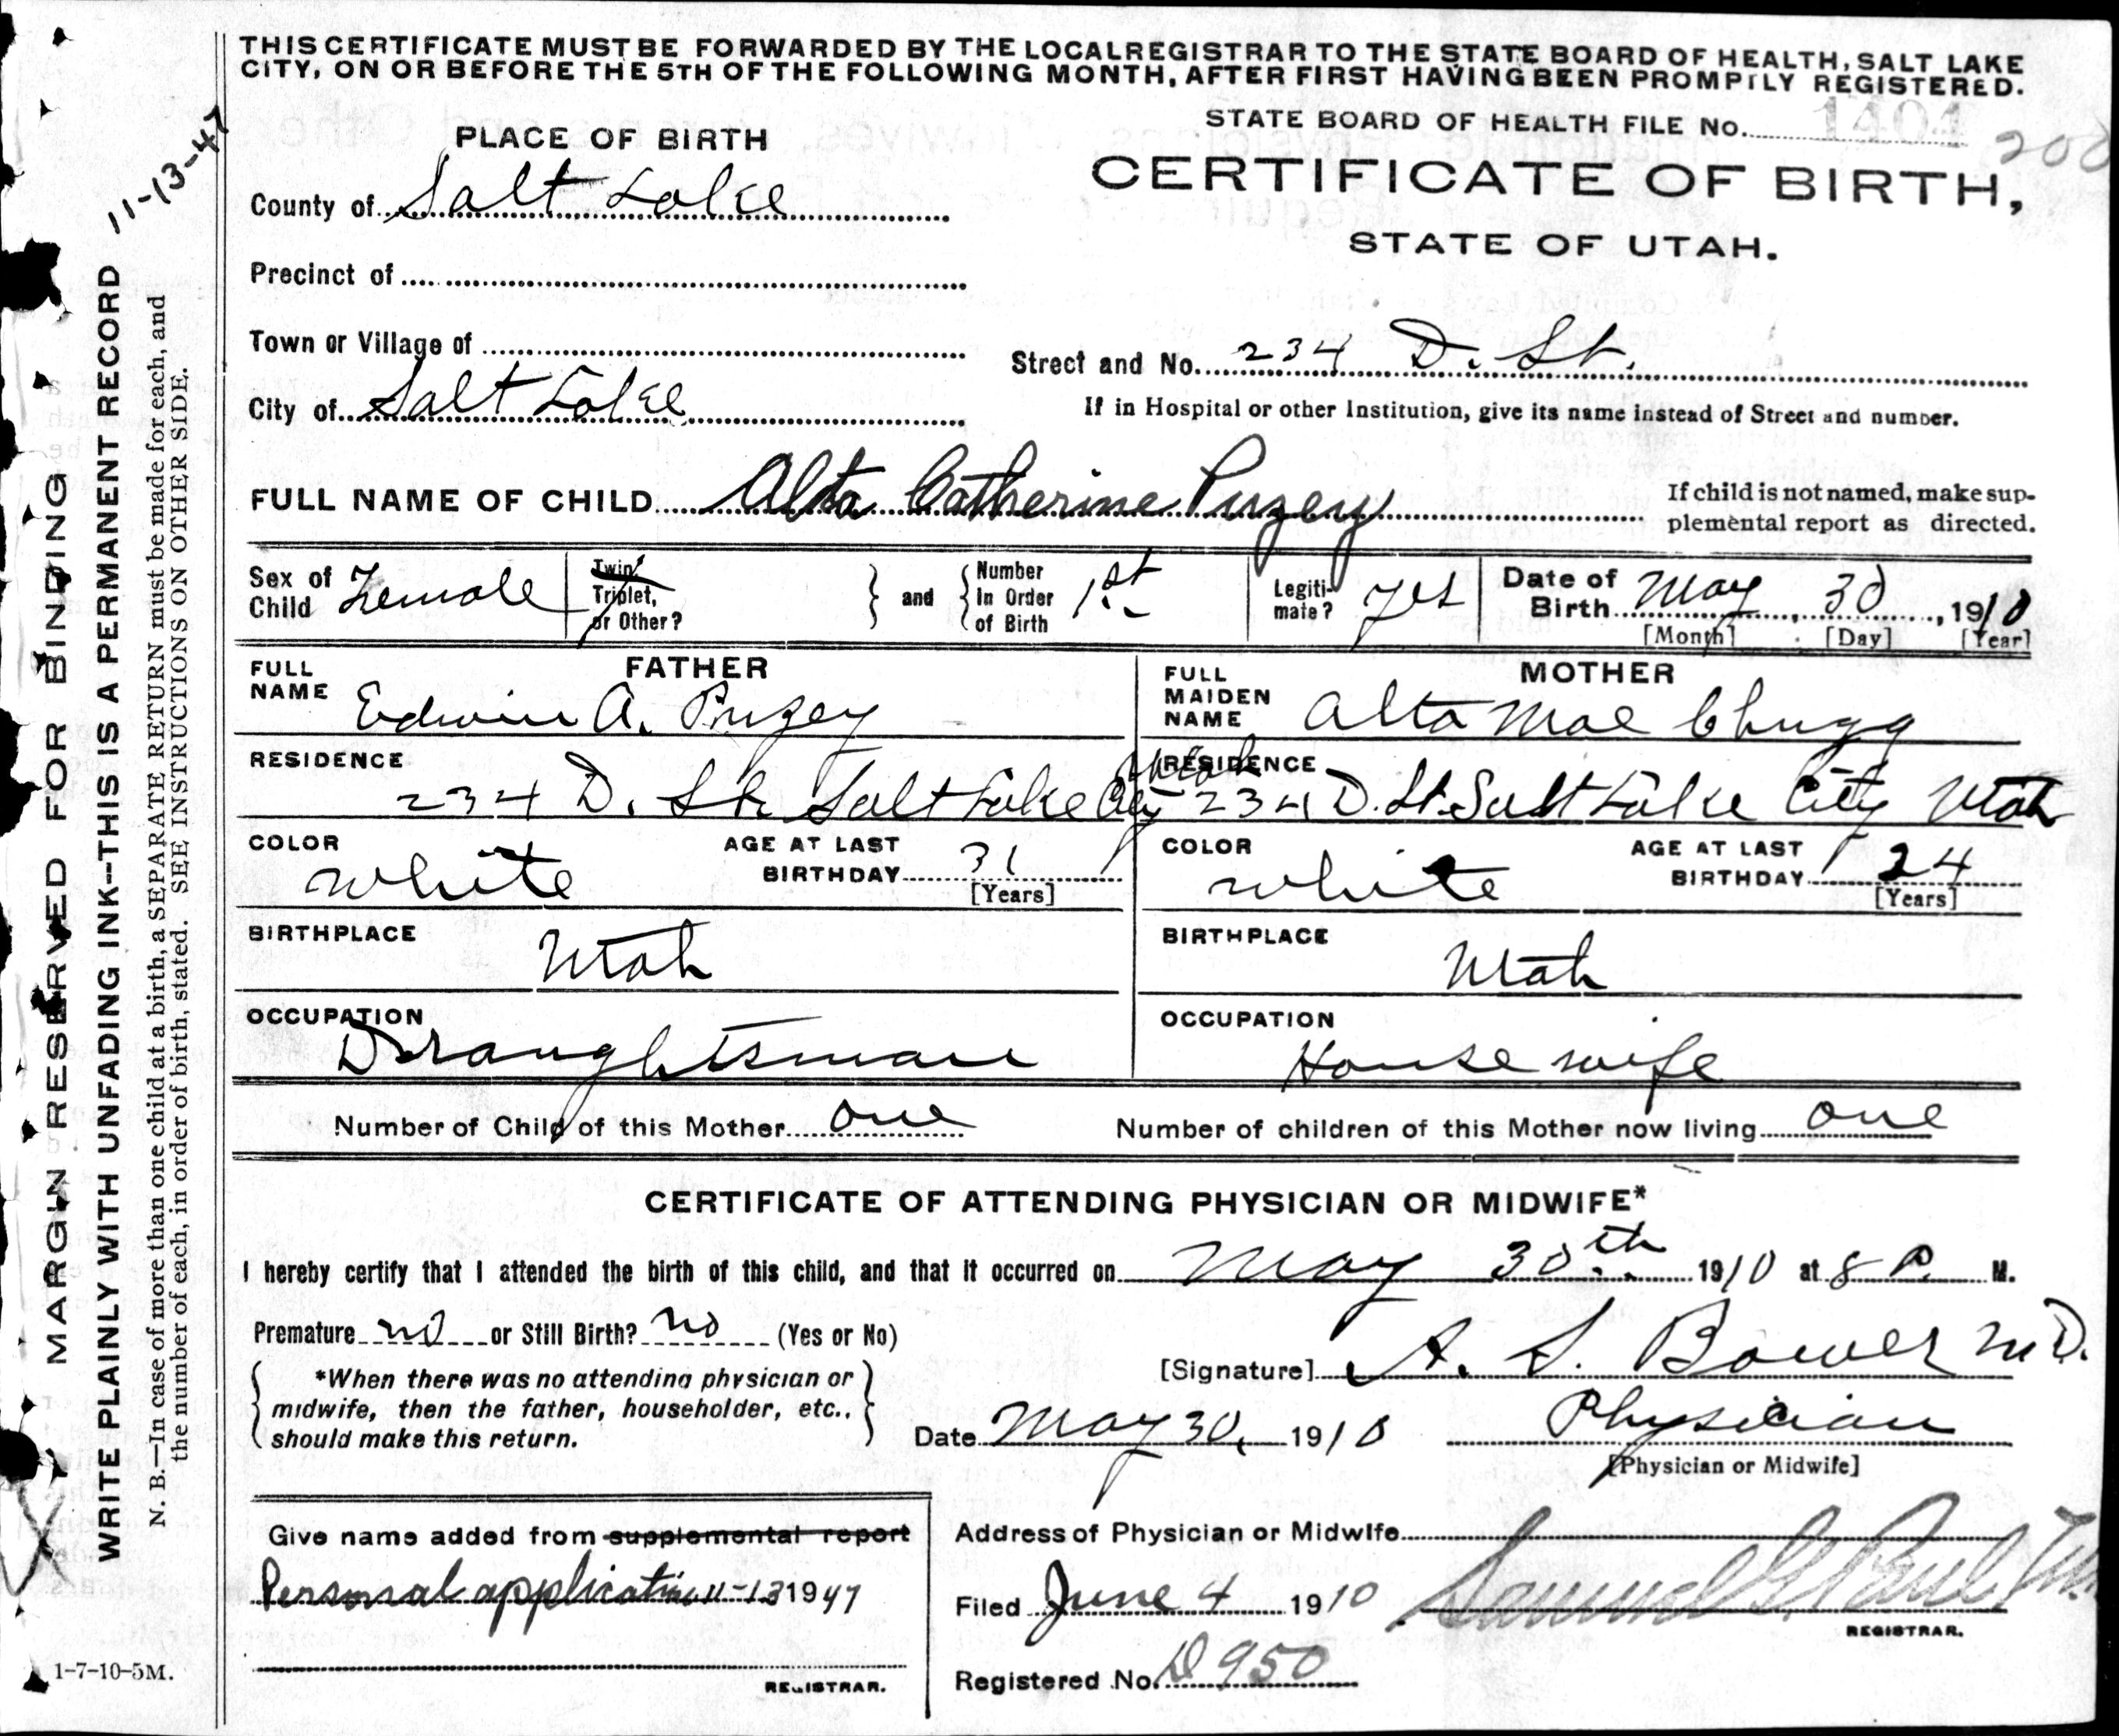 THIS CERTIFICATE MUST BE FORWARDED BY THE LOCAL REGISTRAR TO THE STATE BOARD OF HEALTH, SALT LAKE
CITY, ON OR BEFORE THE 5TH OF THE FOLLOWING MONTH, AFTER FIRST HAVING BEEN PROMPTLY REGISTERED.
STATE BOARD OF HEALTH FILE No. 1404
208
PLACE OF BIRTH
CERTIFICATE OF BIRTH,
STATE OF UTAH.
County of Salt Lake
Precinct of
Town or Village of
Street and No. 234 D. St.
City of Salt Lake
If in Hospital or other Institution, give its name instead of Street and number.
FULL NAME OF CHILD Alta Catherine Puzey
If child is not named, make sup-
plemental report as directed.
Sex of Child Female
Twin, Triplet, or Other?
and
Number In Order of Birth 1st
Legiti-mate? yes
Date of Birth May, 30, 1910
[Month] [Day] [Year]
FATHER
FULL NAME Edwin A. Puzey
RESIDENCE
234 D. St. Salt Lake City Utah
COLOR white
AGE AT LAST BIRTHDAY 31
[Years]
BIRTHPLACE Utah
OCCUPATION Draughtsman
MOTHER
FULL MAIDEN NAME Alta Mae Chugg
RESIDENCE
234 D. St. Salt Lake City Utah
COLOR white
AGE AT LAST BIRTHDAY 24
[Years]
BIRTHPLACE Utah
OCCUPATION House wife
Number of Child of this Mother one
Number of children of this Mother now living one
CERTIFICATE OF ATTENDING PHYSICIAN OR MIDWIFE*
I hereby certify that I attended the birth of this child, and that it occurred on May 30th 1910 at 8 P. M.
Premature no or Still Birth? no (Yes or No)
[Signature] A. S. Bower M.D.
*When there was no attending physician or
midwife, then the father, householder, etc.,
should make this return.
Date May 30, 1910
Physician
[Physician or Midwife]
Give name added from supplemental report
Personal application 11-13 1947
REGISTRAR.
Address of Physician or Midwife
Filed June 4 1910
Samuel G. Paul
REGISTRAR.
Registered No. D 950
MARGIN RESERVED FOR BINDING
WRITE PLAINLY WITH UNFADING INK--THIS IS A PERMANENT RECORD 11-13-47
N. B.—In case of more than one child at a birth, a SEPARATE RETURN must be made for each, and
the number of each, in order of birth, stated. SEE INSTRUCTIONS ON OTHER SIDE.
1-7-10-5M.